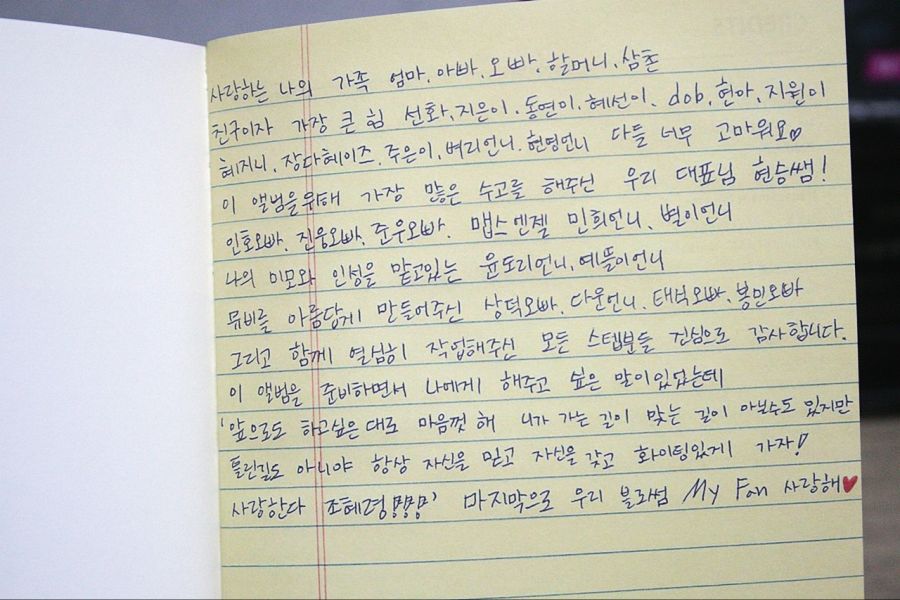 CREDITS
사랑하는 나의 가족 엄마, 아빠, 오빠, 할머니, 삼촌
친구이자 가장 큰 힘 선화, 지은이, 동연이, 혜선이, dob, 현아, 지원이
혜지니, 장다헤이즈, 주은이, 벼리언니, 현영언니 다들 너무 고마워요♡
이 앨범을위해 가장 많은 수고를 해주신 우리 대표님 현승쌤!
인호오빠, 진웅오빠, 준우오빠, 맵스엔젤 민희언니, 별이언니
나의 미모와 인성을 맡고있는 윤도리언니, 예뜰이언니
뮤비를 아름답게 만들어주신 상덕오빠, 다운언니, 태식오빠, 봉민오빠
그리고 함께 열심히 작업해주신 모든 스텝분들 진심으로 감사합니다.
이 앨범을 준비하면서 나에게 해주고 싶은 말이있었는데
'앞으로도 하고싶은대로 마음껏 해 니가 가는 길이 맞는 길이 아닐수도 있지만
틀린길도 아니야 항상 자신을 믿고 자신을 갖고 화이팅있게 가자!
사랑한다 조혜령!!!!' 마지막으로 우리 블로썸 My Fan 사랑해♥